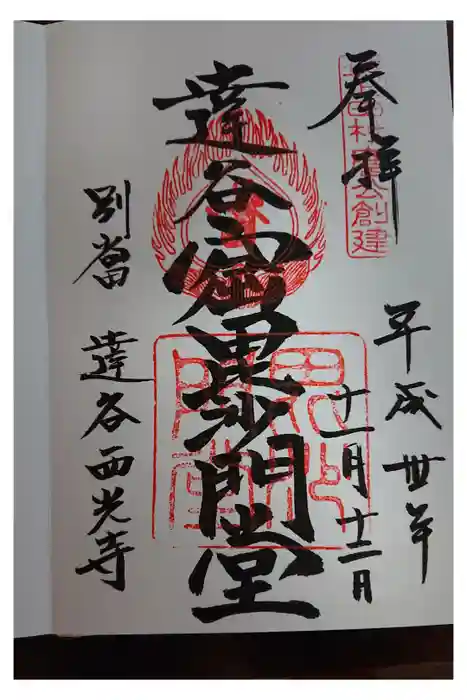 奉拝
公創建
平成丗年
十一月十二日
達谷窟毘沙門堂
別當　達谷西光寺